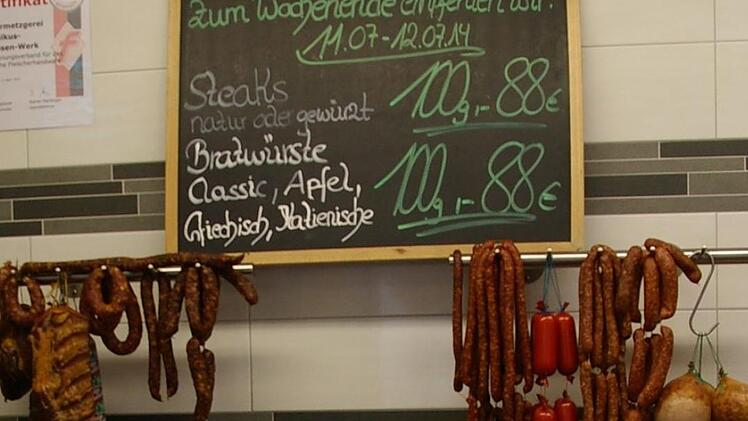 Zum Wochenende empfehlen wir:
11.07-12.07.14
Steaks
natur oder gewürzt
100g,-88€
Bratwürste
Classic, Apfel,
Griechisch, Italienische
100g,-88€
tifikat
ermetzgerei
ikus-
sen-Werk